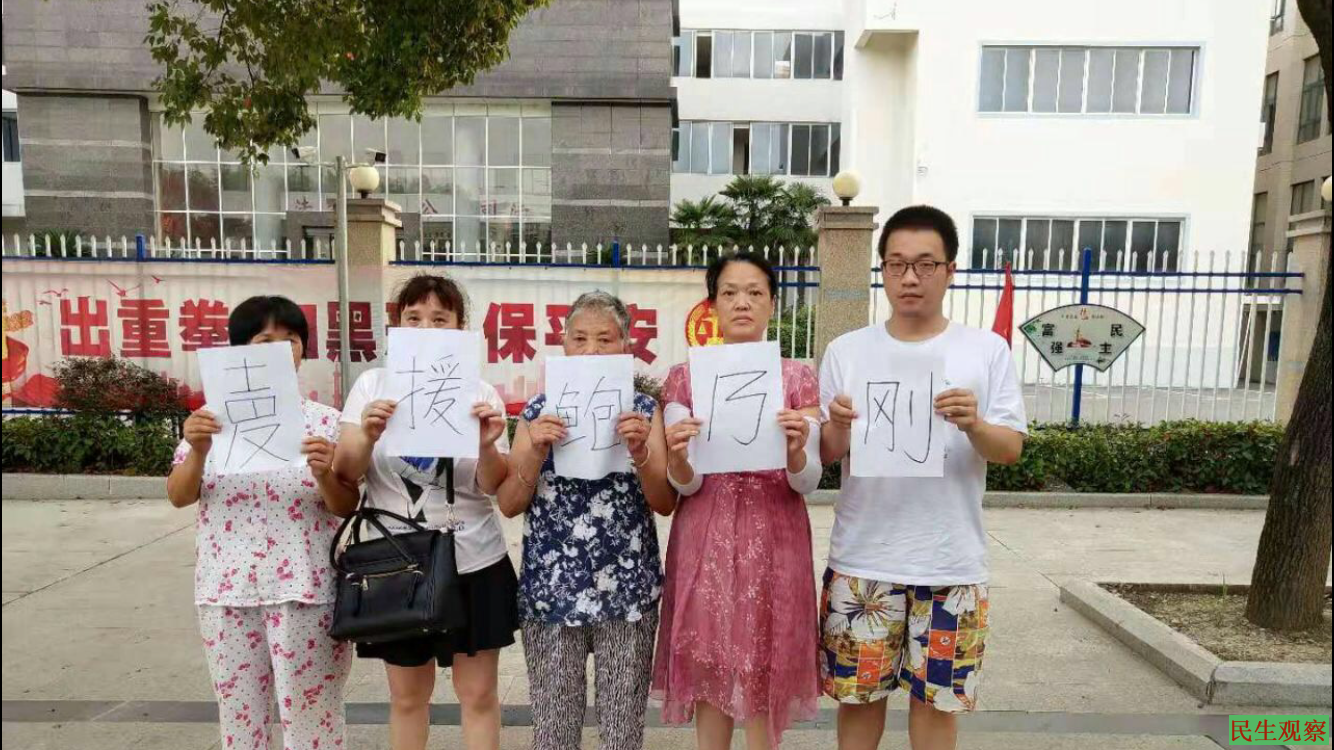 出重拳 黑 保平安
富 民
强 主
声援鲍乃刚
民生观察